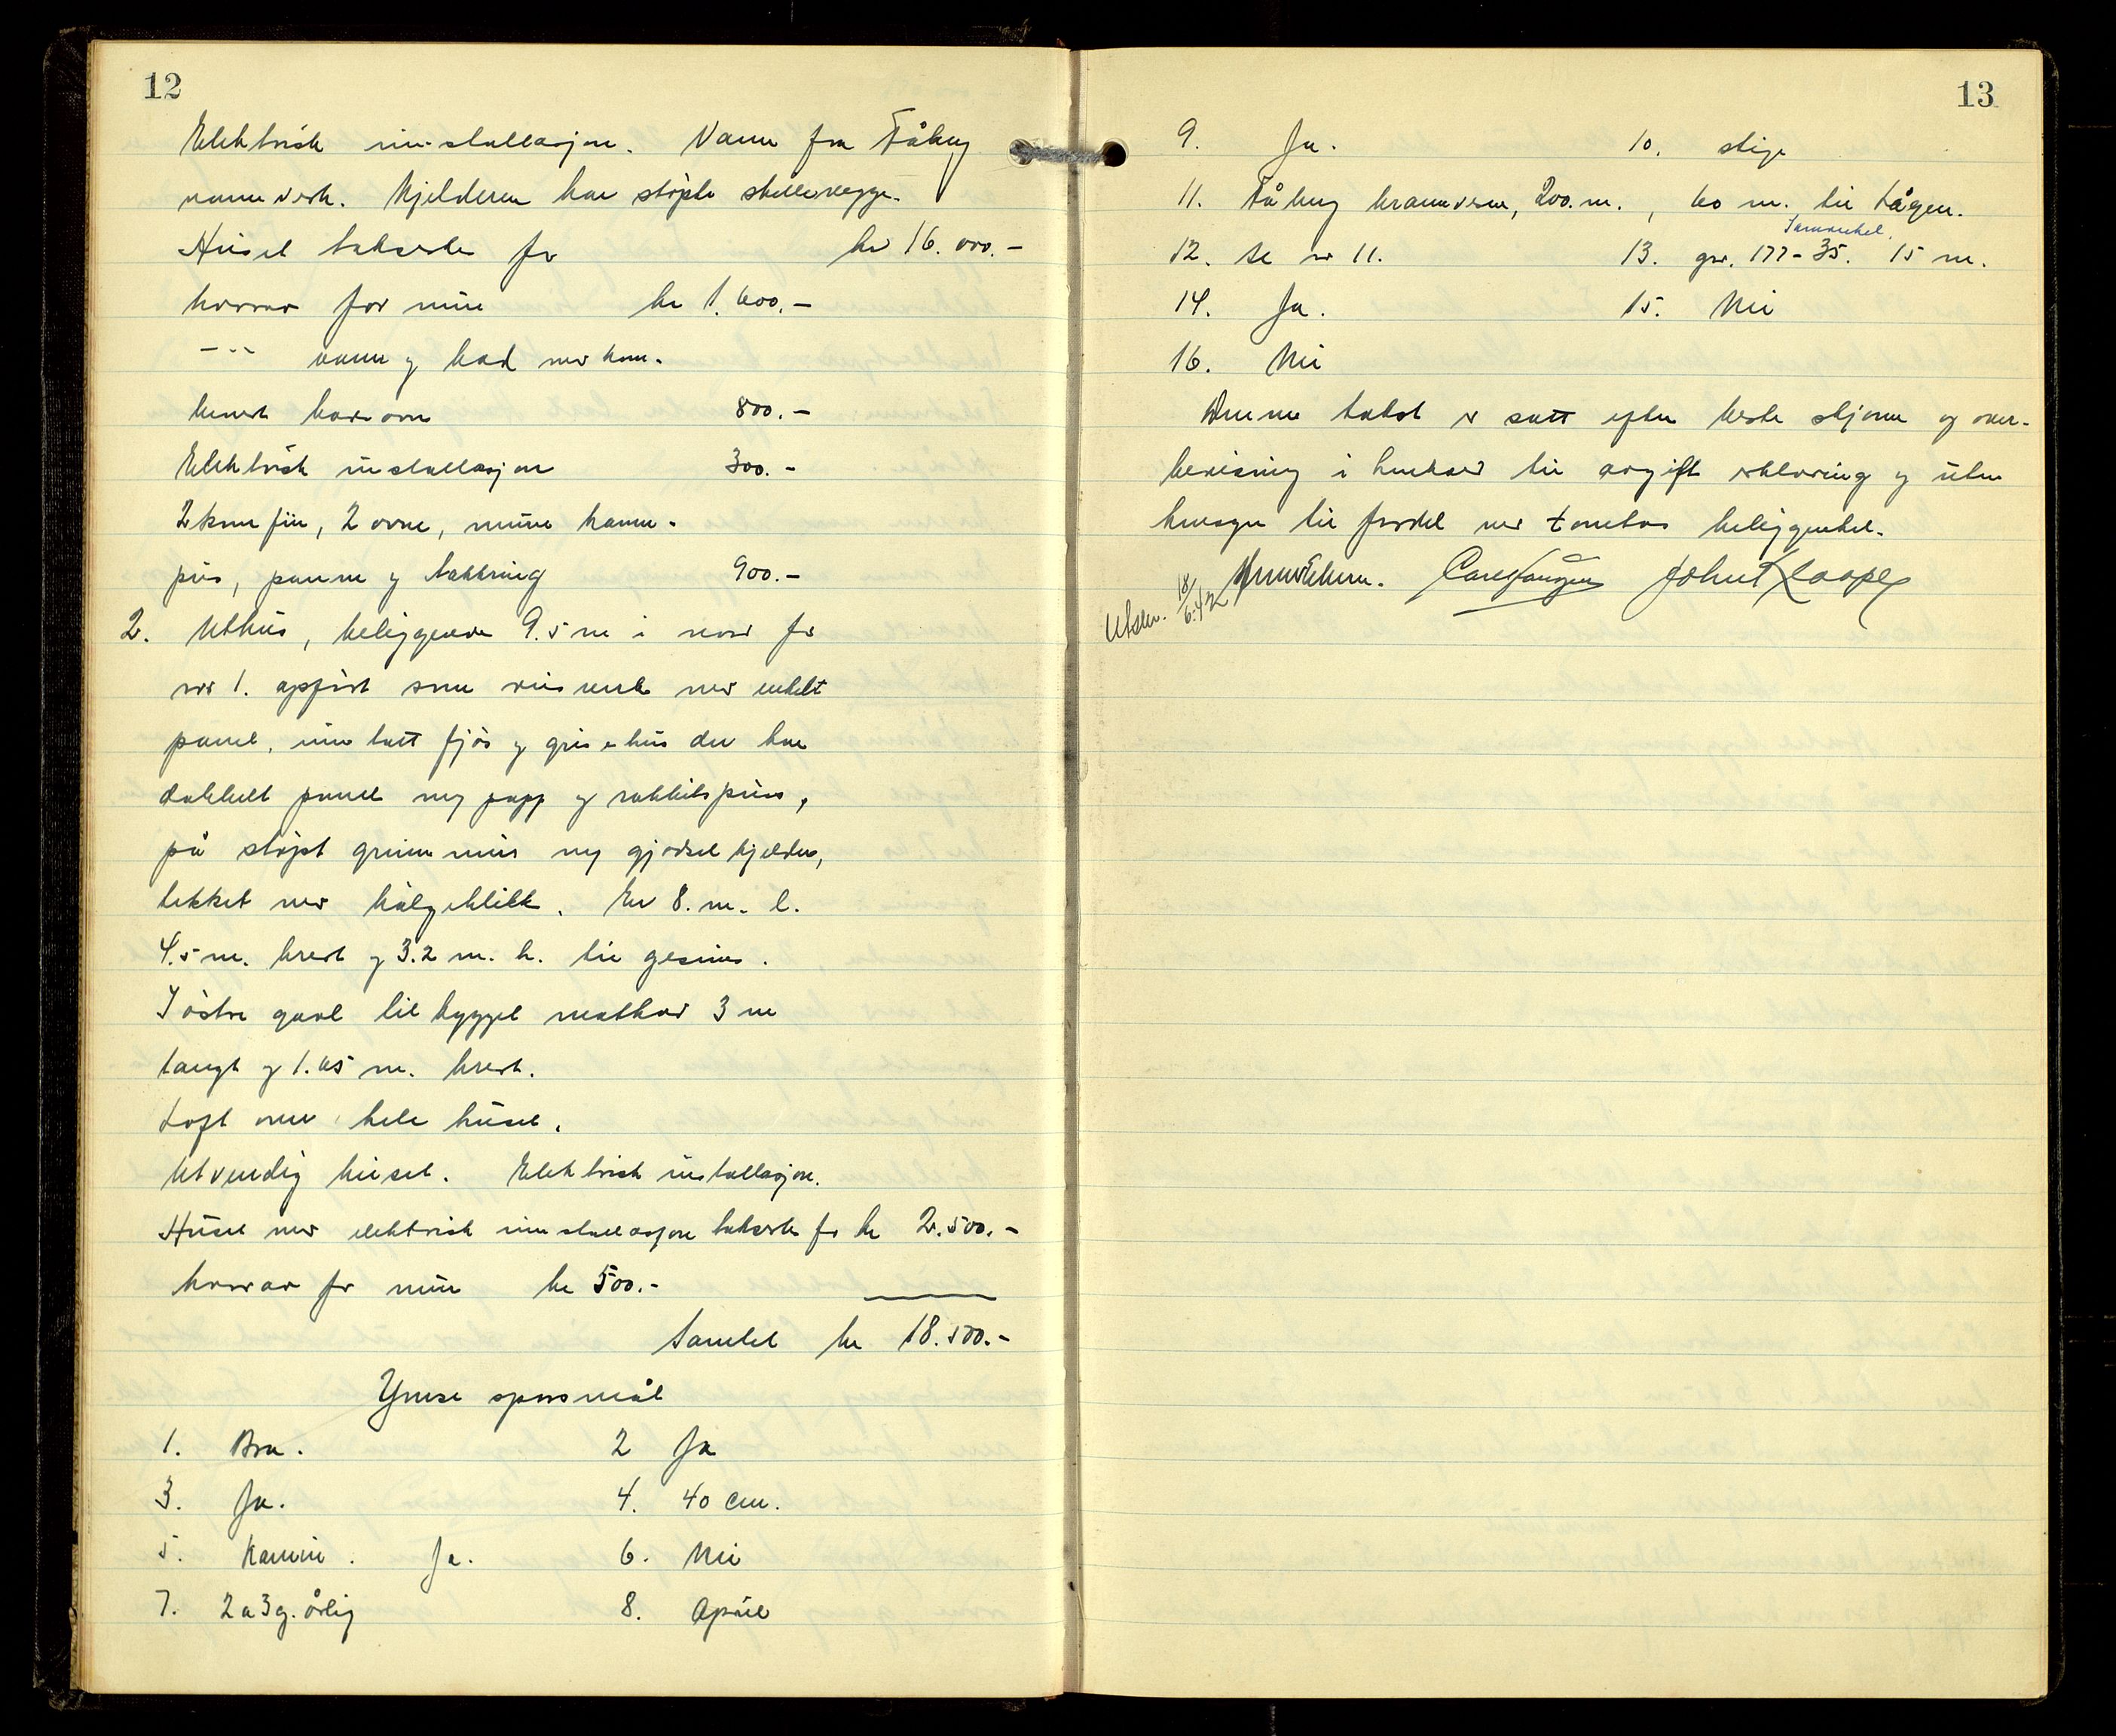 12
Elektrisk innstallasjon. Vann fra Fåberg
vannverk. Kjelderen har støpte skillevegge.
Huset takseres for kr 16.000.-
hvorav for mur kr 1.600.-
-"- vann og bad med kum.
binert badeovn 800.-
Elektrisk installasjon 300.-
2 komfür, 2 ovne, murte
pipe, panne og takkring 900.-
2. Uthus, beliggende 9.5 m i nord for
nr 1. opført som reisverk med enkelt
panel, unntatt fjös og grisehus der har
dobbelt panel og papp og rabbitspuss,
på støpt grunnmur og gjødselkjelder,
tekket med bølgeblikk. Er 8. m. l.
4.5 m. bredt og 3.2 m. h. til gesims.
I östre gavl tilbygget matbod 3 m
langt og 1.65 m. bredt.
Loft over hele huset.
Utvendig beiset. Elektrisk installasjon.
Huset med elektrisk innstallasjon takseres for kr 2.500.-
hvorav for mur kr 500.-
Samlet kr 18.500.-
Ymse spørsmål
1. Bra. 2 Ja
3. Ja. 4. 40 cm.
5. Kamin. Ja. 6. Nei
7. 2 a 3 g. årlig 8. April
13
9. Ja. 10. stige
11. Fåberg brannvern, 200. m., 60 m. til Lågen.
12. Se nr 11. 13. gnr. 177-35. 15 m.
14. Ja. 15. Nei
16. Nei
Denne takst er satt efter beste skjønn og over-
bevisning i henhold til avgitt erklæring og uten
hensyn til fordel ved tomtens beliggenhet.
John Kloope
Utskr. 18/6-42